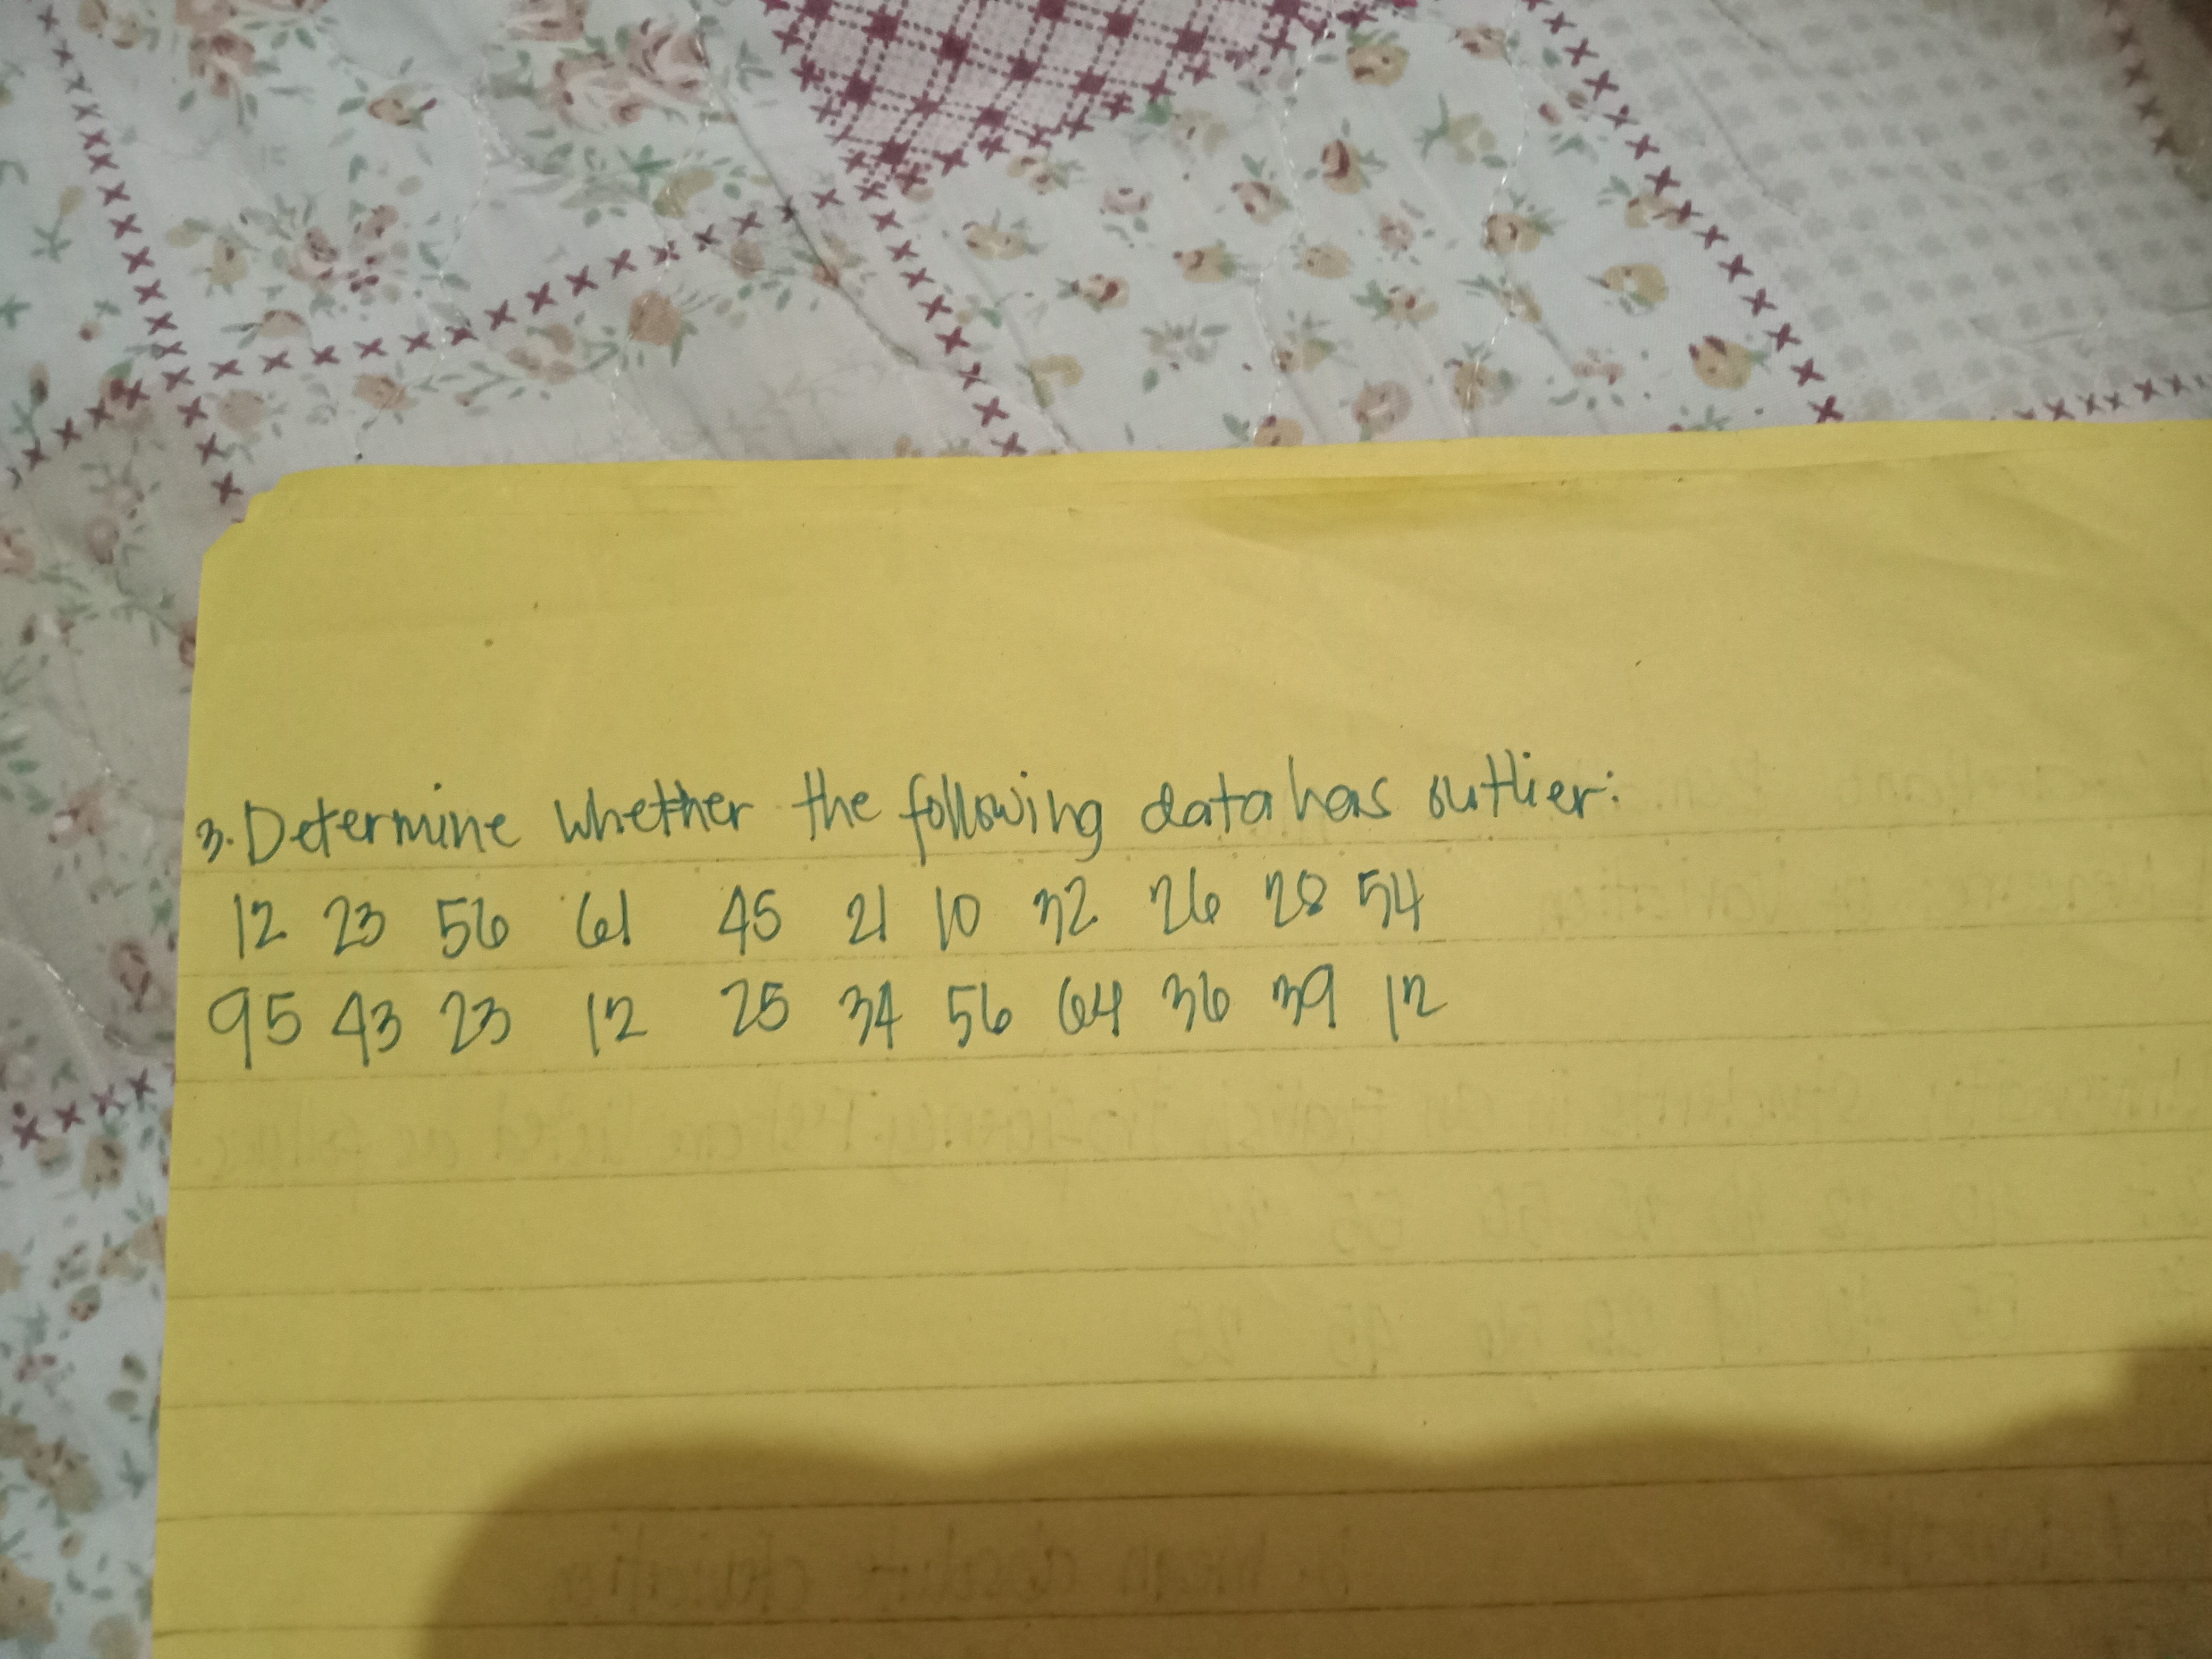 3. Determine whether the following data has outlier:
12 23 56 61 45 21 10 32 26 28 54
95 43 23 12 25 34 56 64 36 39 12